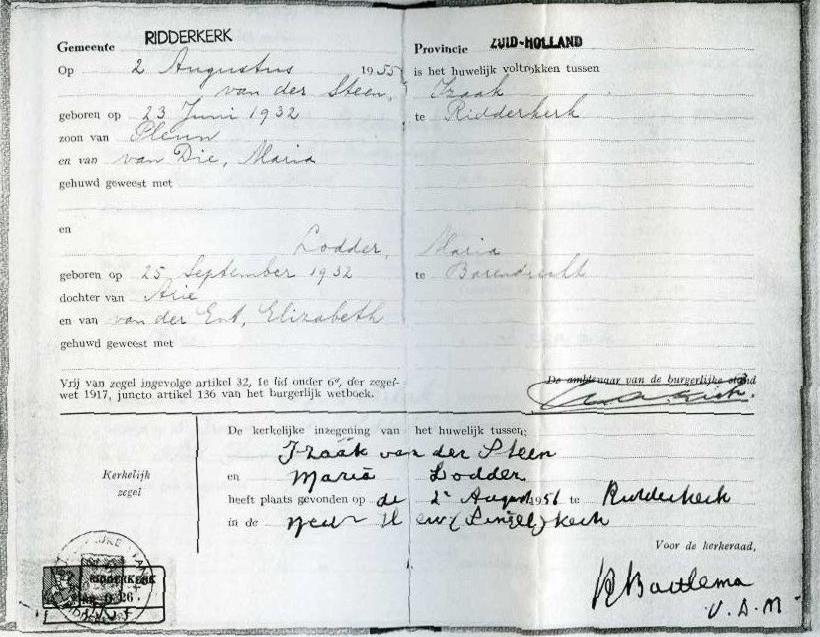 Gemeente RIDDERKERK Provincie ZUID-HOLLAND
Op 2 Augustus 1955 is het huwelijk voltrokken tussen
van der Steen, Izaak
geboren op 23 Juni 1932 te Ridderkerk
zoon van Pleun
en van van Die, Maria
gehuwd geweest met
en
Lodder, Maria
geboren op 25 September 1932 te Barendrecht
dochter van Arie
en van van der Ent, Elizabeth
gehuwd geweest met
Vrij van zegel ingevolge artikel 32, 1e lid onder 6°, der zegel-
wet 1917, juncto artikel 136 van het burgerlijk wetboek.
De ambtenaar van de burgerlijke stand
De kerkelijke inzegening van het huwelijk tussen:
Izaäk van der Steen
en Maria Lodder
heeft plaats gevonden op de 2e August 1956 te Ridderkerk
in de Ned Herv (Singel) kerk
Kerkelijk
zegel
Voor de kerkeraad,
V. D. M
RIDDERKERK